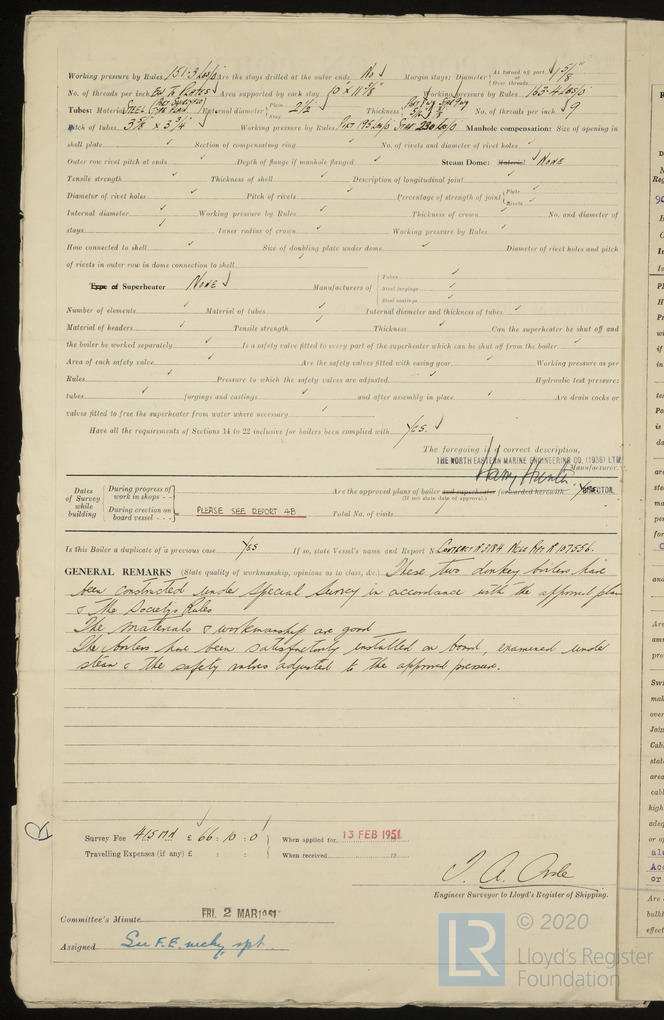 Working pressure by Rules 151·3 Lbs/□" Are the stays drilled at the outer ends No Margin stays: Diameter { At turned off part, or Over threads 1 5/8"
No. of threads per inch Area supported by each stay 10" x 11 5/8" Working pressure by Rules 163·4 Lbs/□"
Tubes: Material STEEL External diameter { Plain Stay 2½" Thickness { No. of threads per inch 9
Pitch of tubes 3 5/8" x 3 3/4" Working pressure by Rules Manhole compensation: Size of opening in
shell plate Section of compensating ring No. of rivets and diameter of rivet holes
Outer row rivet pitch at ends Depth of flange if manhole flanged Steam Dome: Material NONE
Tensile strength Thickness of shell Description of longitudinal joint
Diameter of rivet holes Pitch of rivets Percentage of strength of joint { Plate Rivets
Internal diameter Working pressure by Rules Thickness of crown No. and diameter of
stays Inner radius of crown Working pressure by Rules
How connected to shell Size of doubling plate under dome Diameter of rivet holes and pitch
of rivets in outer row in dome connection to shell
Type of Superheater NONE Manufacturers of { Tubes Steel forgings Steel castings
Number of elements Material of tubes Internal diameter and thickness of tubes
Material of headers Tensile strength Thickness Can the superheater be shut off and
the boiler be worked separately Is a safety valve fitted to every part of the superheater which can be shut off from the boiler
Area of each safety valve Are the safety valves fitted with easing gear Working pressure as per
Rules Pressure to which the safety valves are adjusted Hydraulic test pressure:
tubes forgings and castings and after assembly in place Are drain cocks or
valves fitted to free the superheater from water where necessary
Have all the requirements of Sections 14 to 22 inclusive for boilers been complied with YES
The foregoing is a correct description,
THE NORTH EASTERN MARINE ENGINEERING CO. (1938) LTD.
Harry Hunter Manufacturer.
DIRECTOR
Dates of Survey while building { During progress of work in shops - - During erection on board vessel - - - PLEASE SEE REPORT 4B
Are the approved plans of boiler and superheater forwarded herewith YES
(If not state date of approval.)
Total No. of visits
Is this Boiler a duplicate of a previous case YES If so, state Vessel's name and Report No. CONTRACT R 3184 NWC RPT R 107556.
GENERAL REMARKS (State quality of workmanship, opinions as to class, &c.) These two donkey boilers have
been constructed under Special Survey in accordance with the approved plan
& The Society's Rules
The materials & workmanship are good
The boilers have been satisfactorily installed on board, examined under
steam & the safety valves adjusted to the approved pressure.
Survey Fee £ 66 : 10 : 0 When applied for 13 FEB 1951
Travelling Expenses (if any) £ : : When received 19
Engineer Surveyor to Lloyd's Register of Shipping.
Committee's Minute FRI. 2 MAR 1951
Assigned See F.E. mchy rpt.
© 2020
LR
Lloyd's Register
Foundation